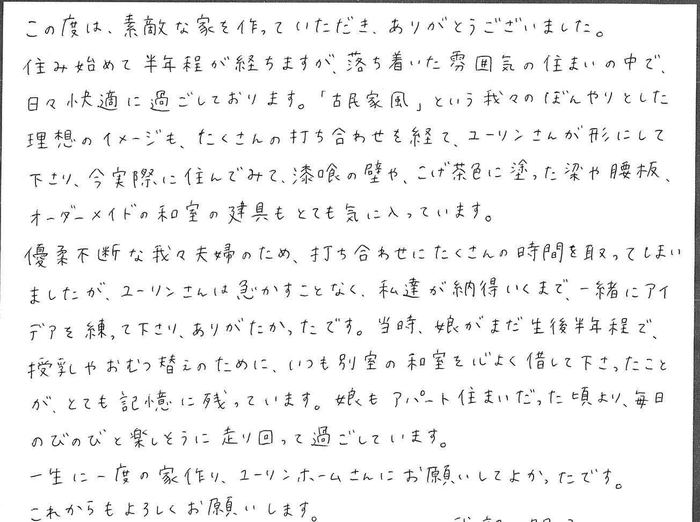 この度は、素敵な家を作っていただき、ありがとうございました。
住み始めて半年程が経ちますが、落ち着いた雰囲気の住まいの中で、
日々快適に過ごしております。「古民家風」という我々のぼんやりとした
理想のイメージも、たくさんの打ち合わせを経て、ユーリンさんが形にして
下さり、今実際に住んでみて、漆喰の壁や、こげ茶色に塗った梁や腰板、
オーダーメイドの和室の建具もとても気に入っています。
優柔不断な我々夫婦のため、打ち合わせにたくさんの時間を取ってしまい
ましたが、ユーリンさんは急かすことなく、私達が納得いくまで、一緒にアイ
デアを練って下さり、ありがたかったです。当時、娘がまだ生後半年程で、
授乳やおむつ替えのために、いつも別室の和室を心よく借して下さったこと
が、とても記憶に残っています。娘もアパート住まいだった頃より、毎日
のびのびと楽しそうに走り回って過ごしています。
一生に一度の家作り、ユーリンホームさんにお願いしてよかったです。
これからもよろしくお願いします。